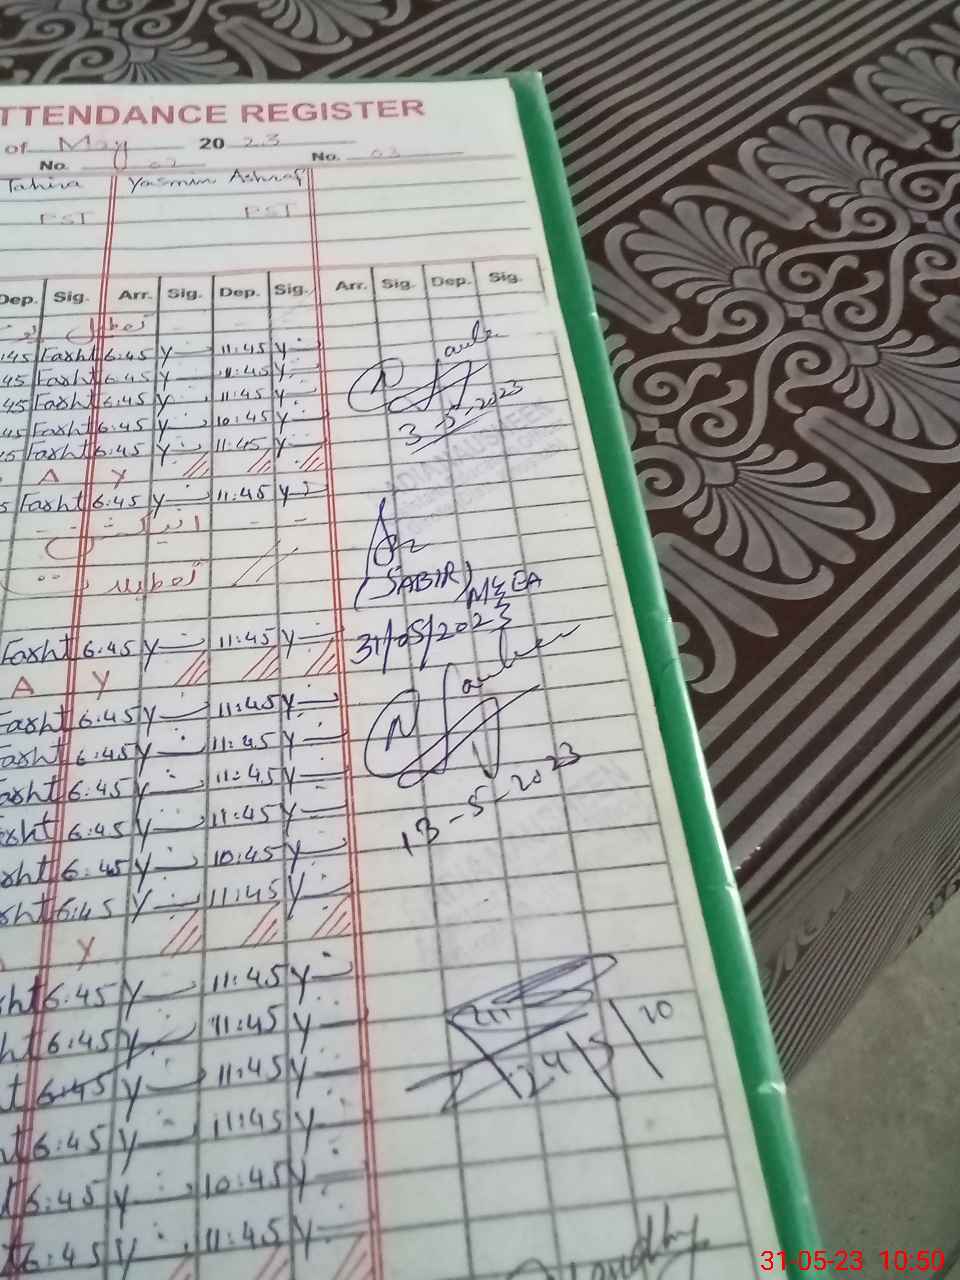 TTENDANCE REGISTER
of May 2023
No. 02 No. 03
Tahira Yasmin Ashraf
PST PST
Dep. Sig. Arr. Sig. Dep. Sig. Arr. Sig. Dep. Sig.
تعطیل
:45 Farht 6:45 Y 11:45 Y
45 Farht 6:45 Y 11:45 Y
45 Farht 6:45 Y 11:45 Y
45 Farht 6:45 Y 10:45 Y
3-5-2023
5 Farht 6:45 Y 11:45 Y
A Y
5 Farht 6:45 Y 11:45 Y
(SABIR) MEEA
31/05/2023
Farht 6:45 Y 11:45 Y
A Y
Farht 6:45 Y 11:45 Y
arht 6:45 Y 11:45 Y
arht 6:45 Y 11:45 Y
13-5-2023
rht 6:45 Y 11:45 Y
rht 6:45 Y 10:45 Y
rht 6:45 Y 11:45 Y
Y
ht 6:45 Y 11:45 Y
ht 6:45 Y 11:45 Y
24/5/20
t 6:45 Y 11:45 Y
t 6:45 Y 11:45 Y
t 6:45 Y 10:45 Y
t 6:45 Y 11:45 Y
31-05-23 10:50